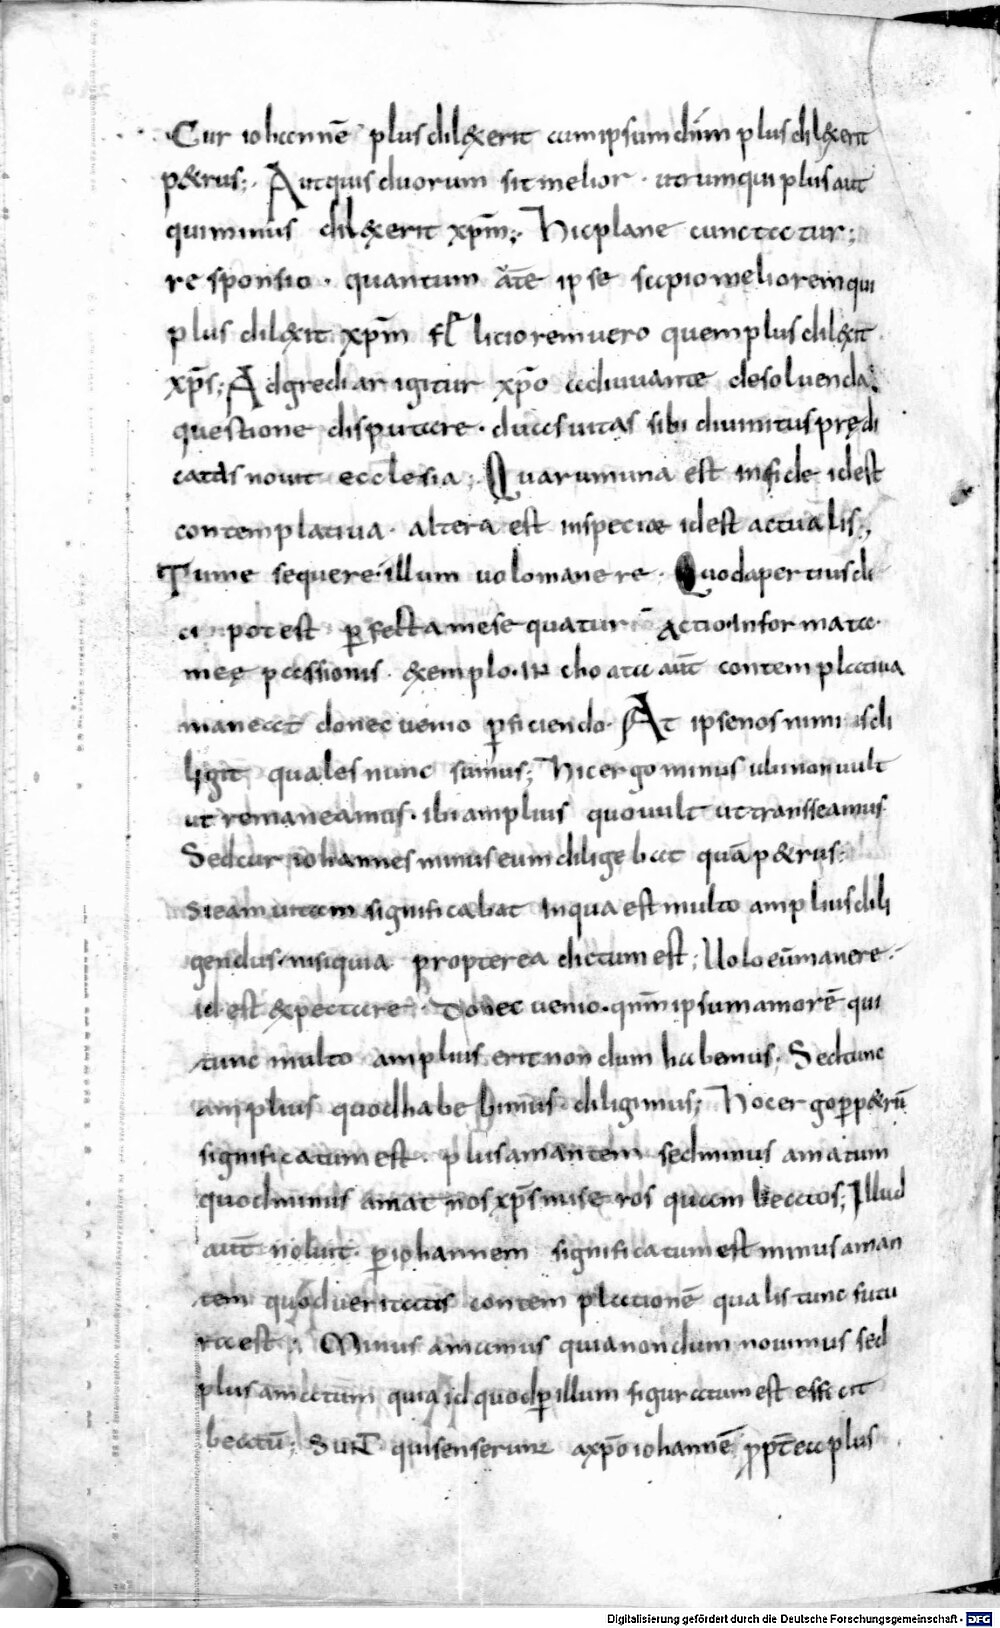 Cur iohannē plus dilexerit cum ipsum dn̄m plus dilexerit
p&rus; Aut quis duorum sit melior · utrum qui plus aut
qui minus dil&erit xp̄m; Hic plane cunctatur;
responsio · quantum āte ipse sapio meliorem qui
plus dil&it xp̄m licioremuero quem plus dil&it
xp̄s; Adgrediar igitur xp̄o adiuuante desoluenda
questione disputare · duas uitas sibi diuinitus prędi
catas nouit ecclesia; Quarum una est in fide idest
contemplatiua · altera est in specie idest actualis;
Tu me sequere · illum uolo manere · Quod apertius di
ci potest perfecta me sequatur actio · informata
meę passionis exemplo · inchoata aūt contemplatiua
maneat donec uenio p̱ficiendo · At ipse nos nimis di
ligit quales nunc sumus; Hic ergo minus ubi non uult
ut remaneamus · ibi amplius quo uult ut transseamus
Sed cur iohannes minus eum diligebat quā p&rus;
Si eam uitam significabat in qua est multo amplius dili
gendus · nisi quia propterea dictum est; Uolo eūmanere ·
id est expectare · Donec uenio · qm̄ ipsum amorē qui
tunc multo amplius erit nondum habemus · Sed tunc
amplius quod habebimus diligimus; Hoc ergo p̱ p&rū
significatum est · plus amantem sed minus amatum
quod minus amat nos xp̄s miseros quam beatos; Illud
aūt noluit · p̱ iohannem significatum est minus aman
tem quod ueritatis contemplationē qualis tunc futu
ra est; Minus amamus quia nondum nouimus sed
plus amatum quia id quod p̱ illum figuratum est efficit
beatū; Sunt qui senserunt a xp̄o iohannē propt̄ea plus
Digitalisierung gefördert durch die Deutsche Forschungsgemeinschaft - DFG